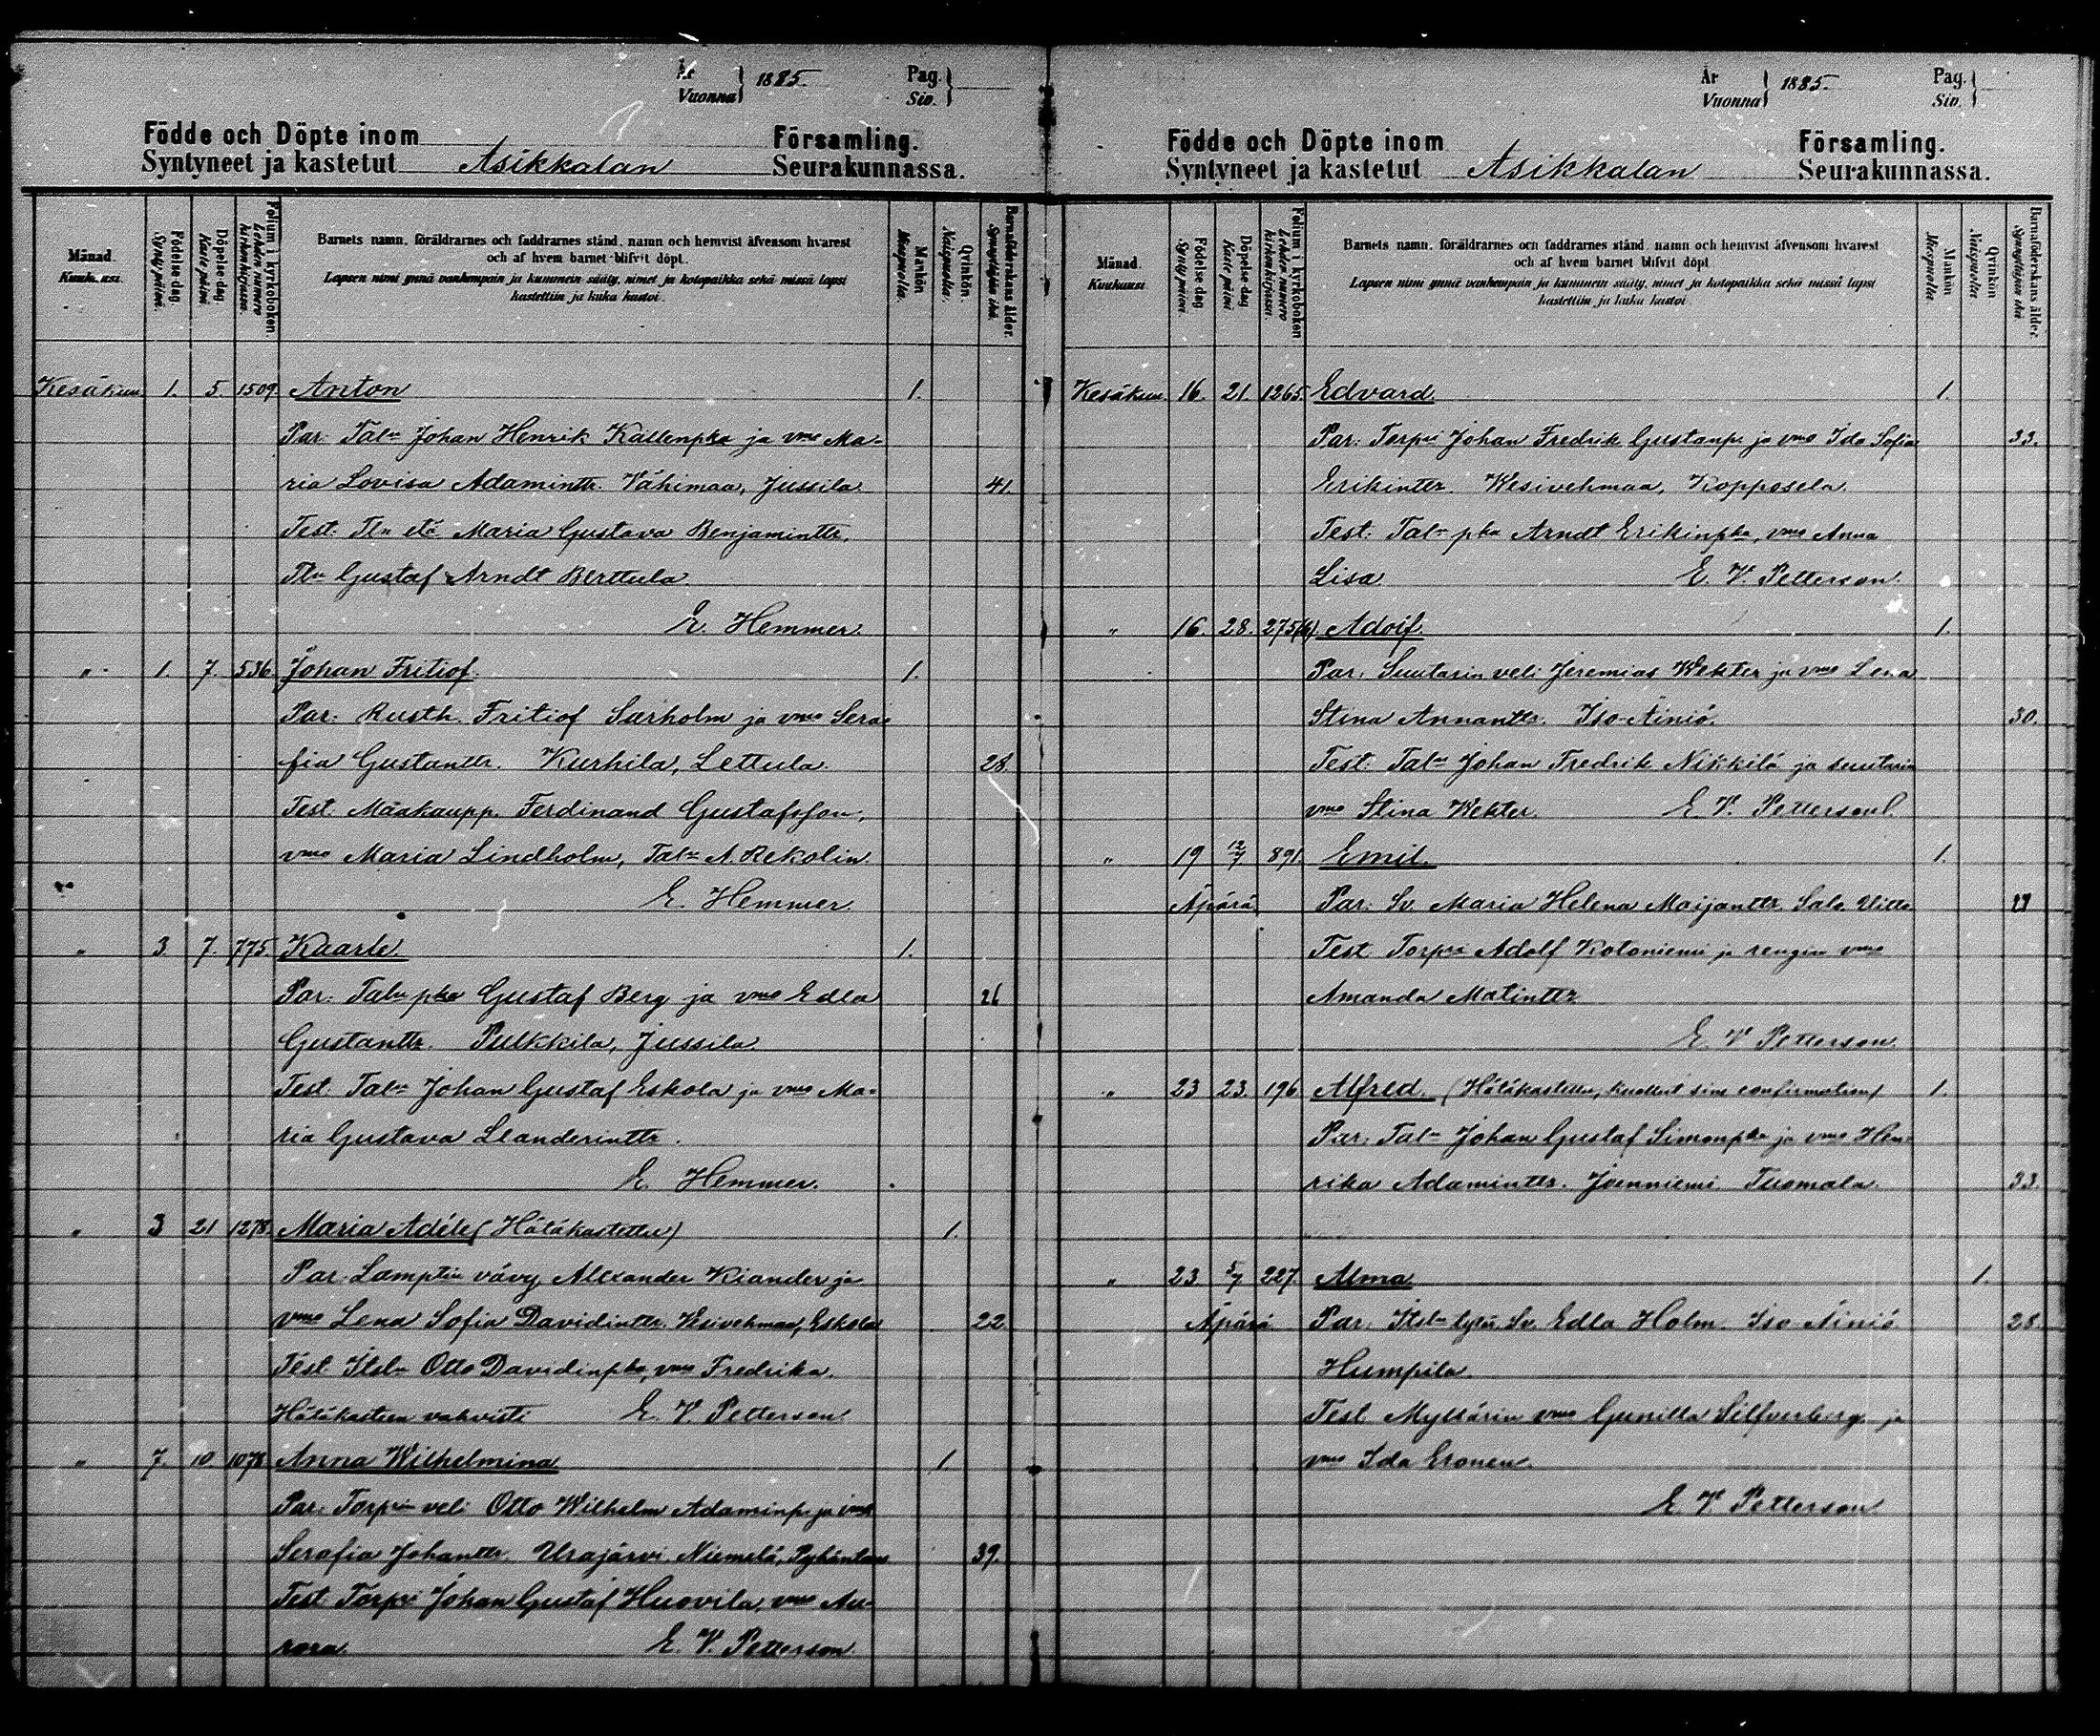 År
Vuonna } 1885.
Pag.
Siv. }
Födde och Döpte inom Församling.
Syntyneet ja kastetut Asikkalan Seurakunnassa.
Månad. Kuukausi.
Födelse-dag. Synty päivä.
Döpelse-dag. Kaste päivä
Folium i kyrkoboken. Lehden numero kirkonkirjassa.
Barnets namn, föräldrarnes och faddrarnes stånd, namn och hemvist äfvensom hvarest
och af hvem barnet blifvit döpt.
Lapsen nimi ynnä vanhempain ja kummein sääty, nimet ja kotopaikka sekä missä lapsi
kastettiin ja kuka kastoi.
Mankön. Miespuolia.
Qvinkön. Naispuolia.
Barnaföderskans ålder. Synnyttäjän ikä.
Kesäkuu 1. 5. 1509. Anton 1.
Par: Taln Johan Henrik Kallenpka ja vmo Ma-
ria Lovisa Adamintr. Vähimaa, Jussila. 41.
Test: Tln etä Maria Gustava Benjamintr,
Tln Gustaf Arndt Berttula.
E. Hemmer.
" 1. 7. 536 Johan Fritiof 1.
Par: Rusth. Fritiof Sarholm ja vmo Sera-
fia Gustantr. Kurhila, Lettula. 28.
Test. Maakaupp. Ferdinand Gustafsson,
vmo Maria Lindholm, Taln A. Rekolin.
E. Hemmer
" 3. 7. 775. Kaarle. 1.
Par: Taln pka Gustaf Berg ja vmo Edla 26
Gustantr. Pulkkila, Jussila.
Test. Taln Johan Gustaf Eskola ja vmo Ma-
ria Gustava Leanderintr.
E. Hemmer.
" 3 21 1278. Maria Adéle (Hätäkastettu) 1.
Par. Lamptin vävy Alexander Kiander ja
vmo Lena Sofia Davidintr. Wesivehmaa, Eskola 22.
Test. Itsln Otto Davidinpka, vmo Fredrika.
Hätäkasteen vahvisti E. V. Petterson.
" 7. 10 1078 Anna Wilhelmina 1
Par. Torpin veli Otto Wilhelm Adaminp. ja vmo
Serafia Johantr. Urajärvi. Niemelä, 39.
Test. Torpri Johan Gustaf Huovila, vmo Au-
rora. E. V. Petterson.
År
Vuonna } 1885.
Pag.
Siv. }
Födde och Döpte inom Församling.
Syntyneet ja kastetut Asikkalan Seurakunnassa.
Månad. Kuukausi.
Födelse-dag Synty päivä.
Döpelse-dag Kaste päivä
Folium i kyrkoboken Lehden numero kirkonkirjassa.
Barnets namn, föräldrarnes och faddrarnes stånd, namn och hemvist äfvensom hvarest
och af hvem barnet blifvit döpt
Lapsen nimi ynnä vanhempain ja kummein sääty, nimet ja kotopaikka sekä missä lapsi
kastettiin ja kuka kastoi
Mankön Miespuolia
Qvinkön Naispuolia
Barnaföderskans ålder. Synnyttäjän ikä.
Kesäkuu. 16. 21. 1265. Edvard. 1.
Par: Torpri Johan Fredrik Gustanp. ja vmo Ida Sofia 33.
Erikintr. Wesivehmaa, Kopposela.
Test: Taln pka Arndt Erikinpka, vmo Anna
Lisa E. V. Petterson.
" 16. 28. 275 Adolf. 1.
Par: Suutarin veli Jeremias Wekter ja vmo Lena
Stina Annantr. Iso-Äiniö. 30.
Test. Taln Johan Fredrik Nikkilä ja suutarin
vmo Stina Wekter. E. V. Petterson.
" 19 12/7 891. Emil. 1.
Äpärä Par: Sv. Maria Helena Maijantr.
Test. Torpri Adolf Kotoniemi ja rengin vmo
Amanda Matintr
E. V. Petterson.
" 23 23. 196 Alfred. (Hätäkastettu, kuollut sine confirmation) 1.
Par: Taln Johan Gustaf Simonpka ja vmo Hen-
rika Adamintr. Joenniemi Tuomala. 33.
" 23 5/7 227. Alma 1.
Äpärä Par. Itsln tytär, Sv. Edla Holm. Iso-Äiniö 28.
Humpila.
Test Myllärin vmo Gunilla Silfverberg ja
vmo Ida Eronen.
E. V. Petterson